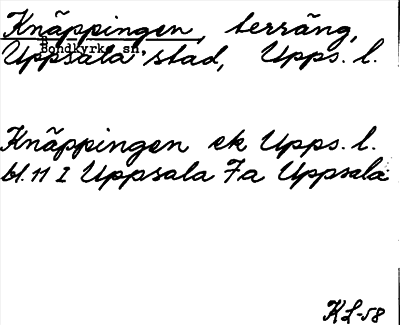 Knäppingen, terräng,
Bondkyrko sn,
Uppsala stad, Upps. l.
Knäppingen ek Upps. l.
bl. 11 I Uppsala 7a Uppsala
KL-58